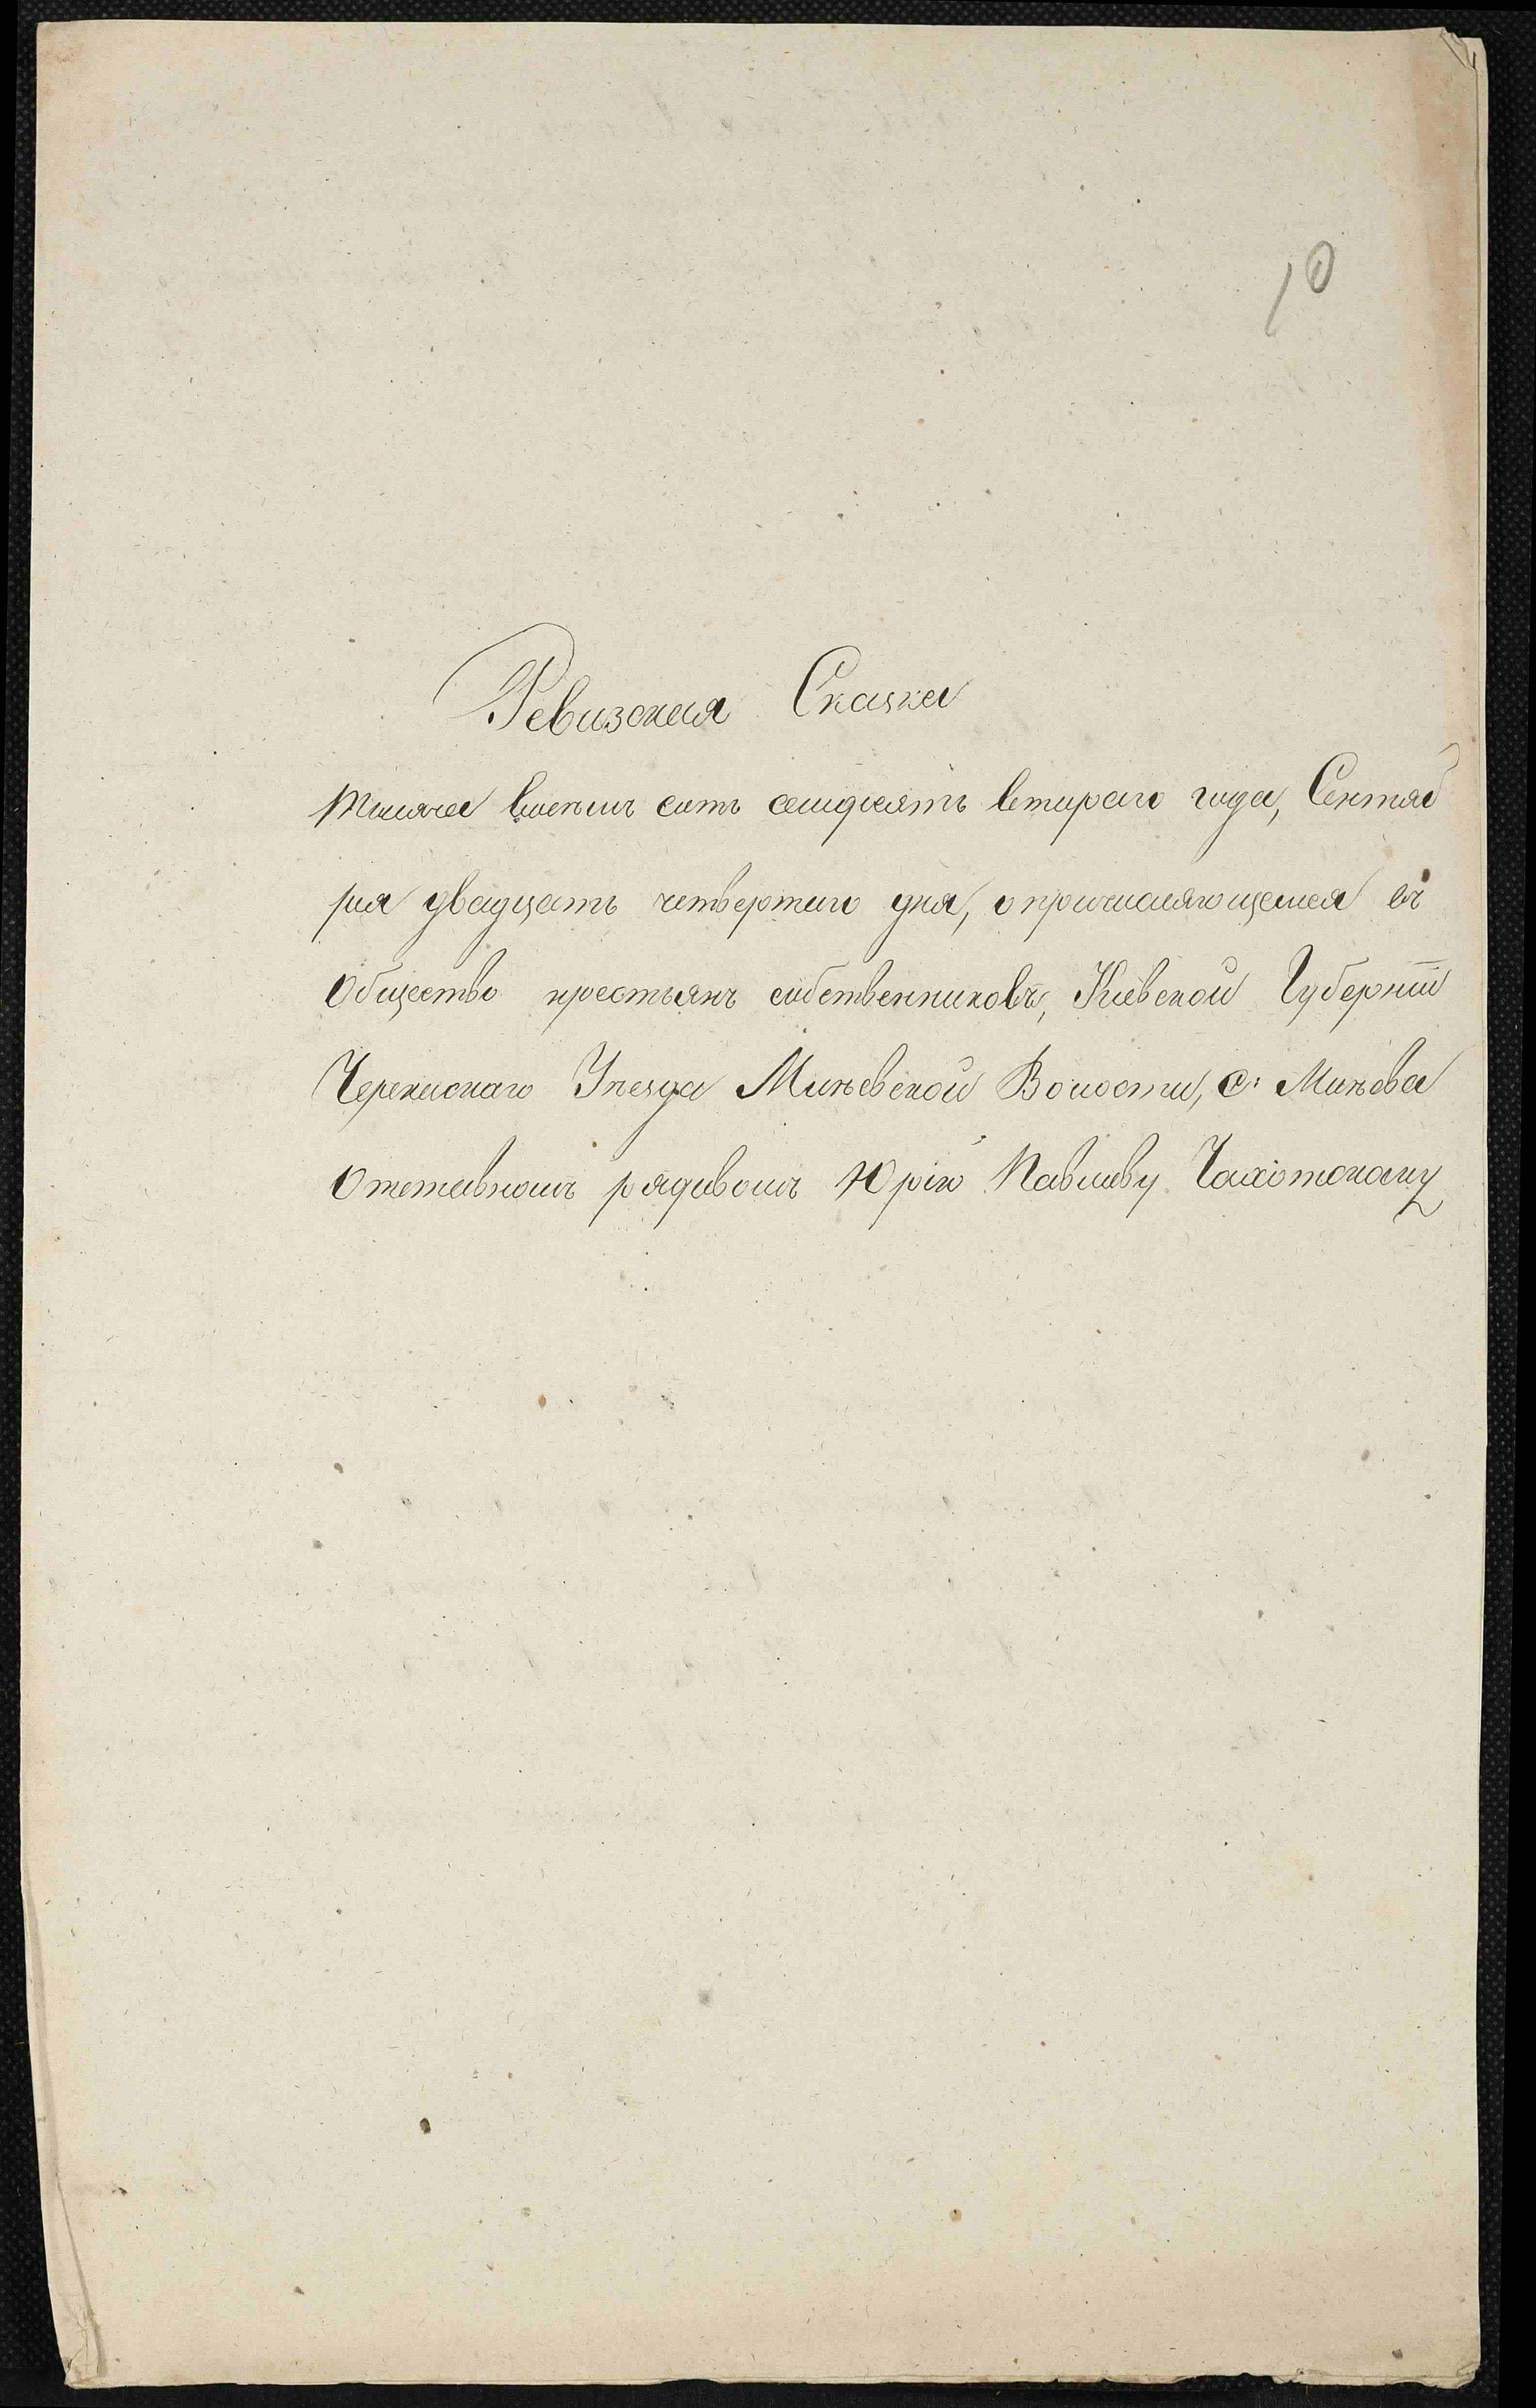 10
Ревизская Сказка
тысяча восемь сотъ семдесятъ втораго года, Сентяб
ря двадцать четвертаго дня, о причисляющемся въ
Общество крестьянъ собственниковъ, Кіевской Губерніи
Черкаскаго Уѣзда Мліевской Волости, с. Мліева
Отставномъ рядовомъ Юрію Павлову